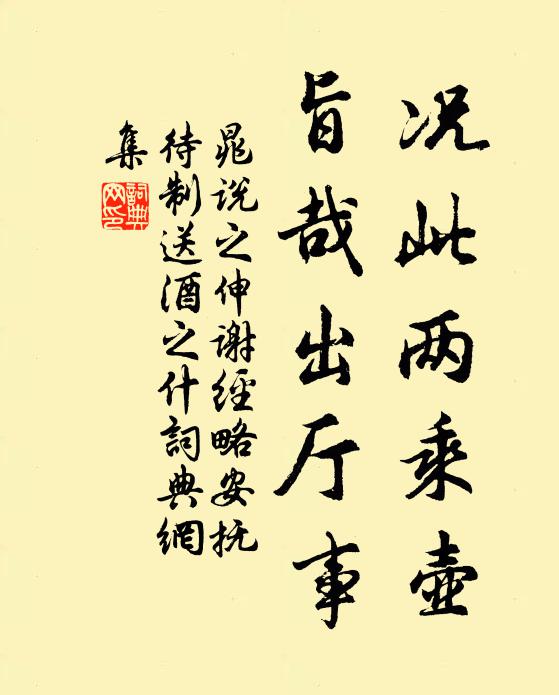 况此两乘壶
旨哉出厅事
晁说之伸谢經略安抚
待制送酒之什詞典網
集
詞典
网印